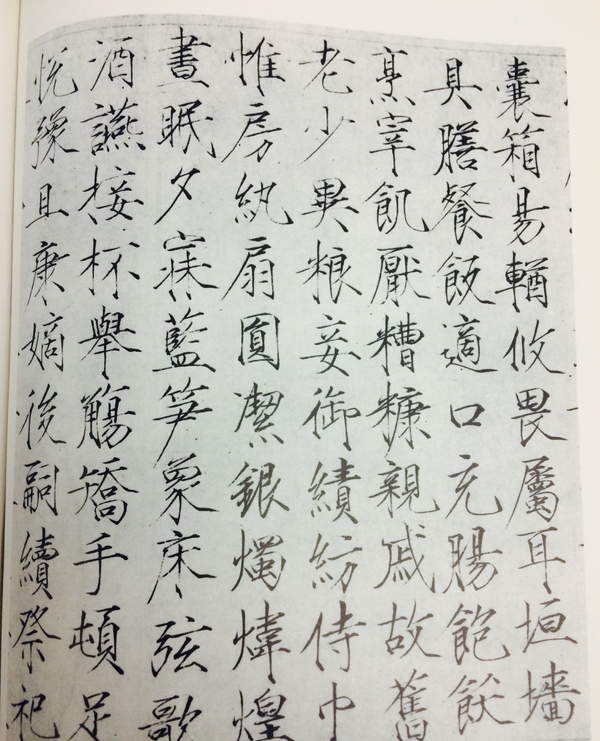 囊箱易輶攸畏屬耳垣墻
具膳餐飯適口充腸飽飫
烹宰飢厭糟糠親戚故舊
老少異粮妾御績紡侍巾
惟房紈扇圓潔銀燭煒煌
晝眠夕寐藍笋象床弦歌
酒讌接杯舉觴矯手頓足
悅豫且康嫡後嗣續祭祀